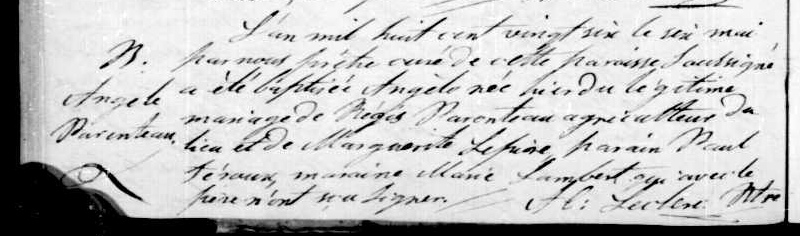 L'an mil huit cent vingt six le six mai
B.
par nous prêtre curé de cette paroisse soussigné
Angèle
a été baptisée Angèle née hier du légitime
mariage de Régis Parenteau agriculteur du
Parenteau
lieu et de Marguerite Lepire, parain Paul
maraine Marie Lambert qui avec le
père n'ont su signer. Leclerc Ptre